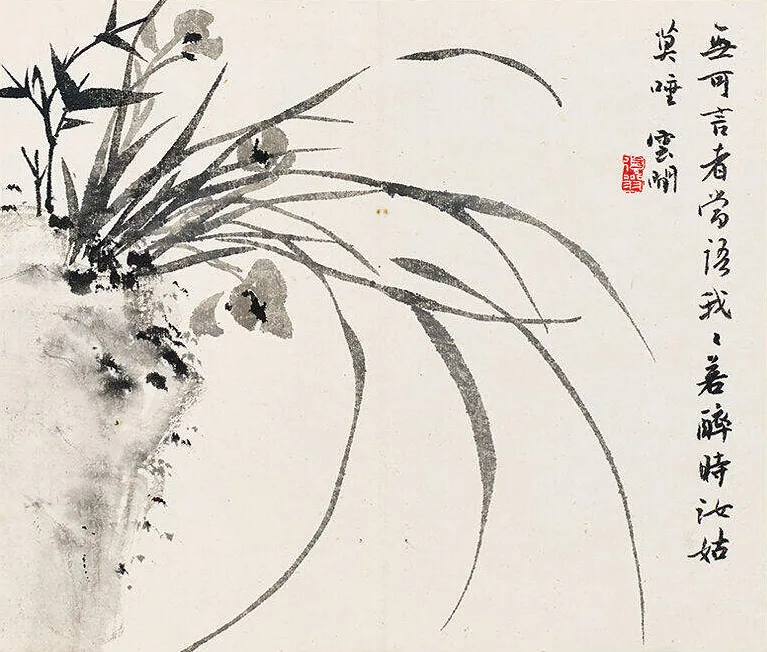 無可言者當語我〻若醉時汝姑
莫唾 雲間